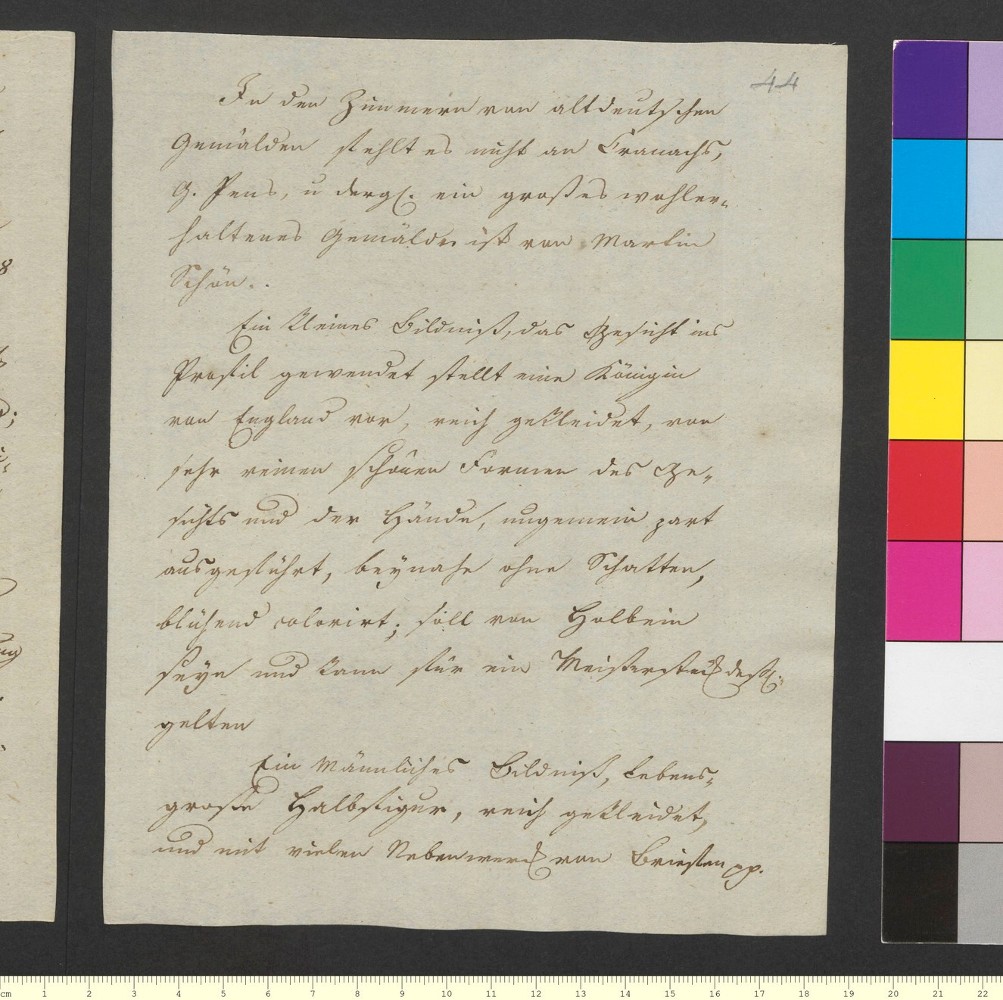 44
In den Zimmern von altdeutschen
Gemälden fehlt es nicht an Cranachs,
G. Pens, u dergl. ein großes wohler¬
haltenes Gemälde ist von Martin
Schön..
Ein kleines Bildniß, das Gesicht ins
Profil gewendet stellt eine Königin
von England vor, reich gekleidet, von
sehr reinen schönen Formen des Ge¬
sichts und der Hände, ungemein zart
ausgeführt, beynahe ohne Schatten,
blühend colorirt; soll von Holbein
seyn und kann für ein Meisterstück deßl:
gelten
Ein Männliches Bildniß, Lebens¬
große Halbfigur, reich gekleidet,
und mit vielen Nebenwerk von Briefen pp.
8
ung
cm 1 2 3 4 5 6 7 8 9 10 11 12 13 14 15 16 17 18 19 20 21 22